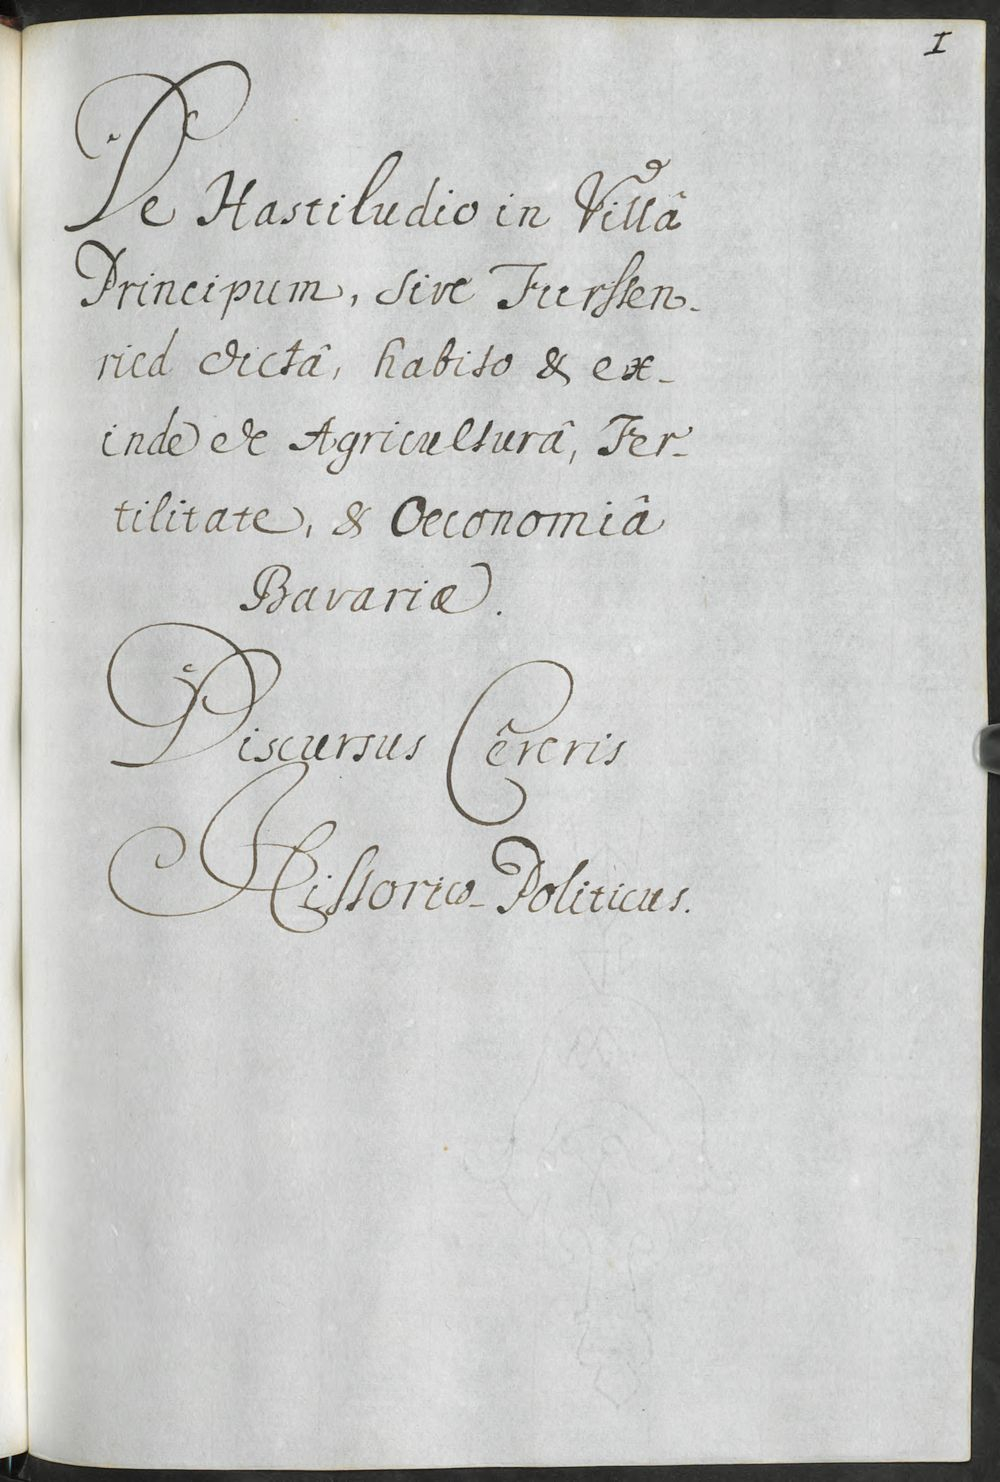 1
De Hastiludio in Villâ
Principum, sive Furssen-
ried dictâ, habito & ex-
inde de Agriculturâ, Fer-
tilitate, & Oeconomiâ
Bavariæ.
Discursus Cereris
Historico-Politicus.